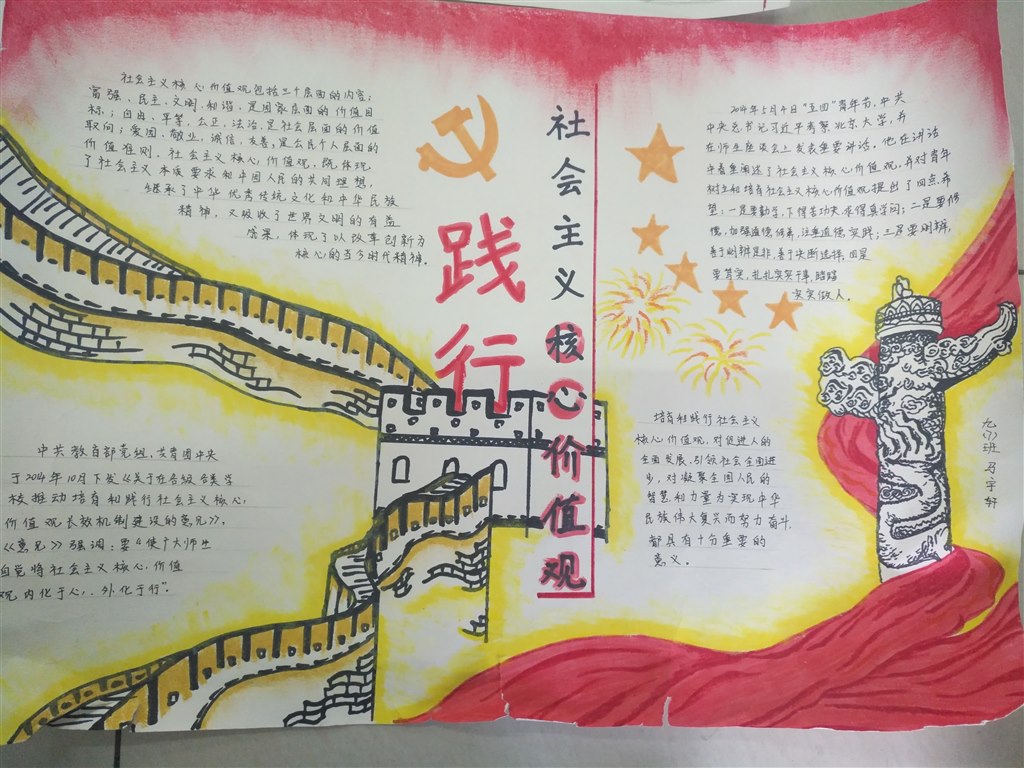 社会主义核心价值观包括三个层面的内容;
富强、民主、文明、和谐,是国家层面的价值目
标;自由、平等、公正、法治,是社会层面的价值
取向;爱国、敬业、诚信、友善,是公民个人层面的
价值准则。社会主义核心价值观,既体现
了社会主义本质要求和中国人民的共同理想,
继承了中华优秀传统文化和中华民族
精神,又吸收了世界文明的有益
成果,体现了以改革创新为
核心的至今时代精神。
践行
社会主义核心价值观
2014年5月4日"五四"青年节,中共
中央总书记习近平考察北京大学,并
在师生座谈会上发表重要讲话。他在讲话
中着重阐述了社会主义核心价值观,并对青年
树立和培育社会主义核心价值观提出了四点希
望:一是要勤学,下得苦功夫,求得真学问;二是要修
德,加强道德修养,注重道德实践;三是要明辨,
善于明辨是非,善于决断选择;四是
要笃实,扎扎实实干事,踏踏
实实做人。
中共教育部党组、共青团中央
于2014年10月下发《关于在各级各类学
校推动培育和践行社会主义核心
价值观长效机制建设的意见》,
《意见》强调:要"使广大师生
自觉将社会主义核心价值
观内化于心、外化于行"
培育和践行社会主义
核心价值观,对促进人的
全面发展、引领社会全面进
步,对凝聚全国人民的
智慧和力量为实现中华
民族伟大复兴而努力奋斗
都具有十分重要的
意义。
九(7)班 习宇轩